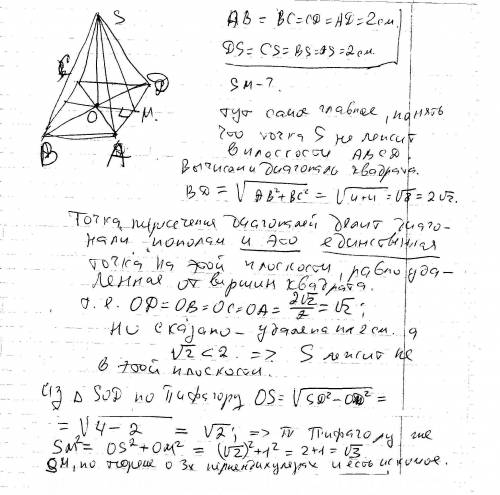 S
C
D
O
M.
B
A
AB = BC = CD = AD = 2см.
DS = CS = BS = AS = 2см.
SM - ?
тут самое главное, понять
что точка S не лежит
в плоскости ABCD.
Вычислим диагональ квадрата.
BD = √AB²+BC² = √4+4 = √8 = 2√2.
Точка пересечения диагоналей делит диаго-
нали пополам и это единственная
точка на этой плоскости, равноуда-
ленная от вершин квадрата.
т.е. OD = OB = OC = OA = 2√2/2 = √2;
Но сказано - удалена на 2 см. а
√2 < 2. => S лежит не
в этой плоскости.
Из Δ SOD по Пифагору OS = √SD²-OD² =
= √4-2 = √2; => по Пифагору же
SM² = OS² + OM² = (√2)² + 1² = 2+1 = √3
SM, по теореме о 3х перпендикулярах и есть искомое.